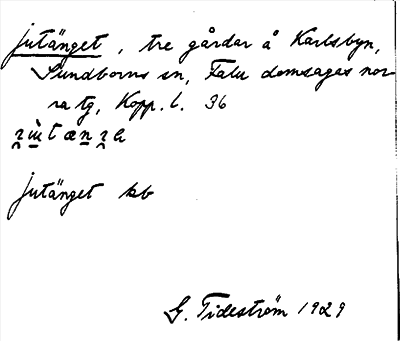 jutänget, tre gårdar å Karlsbyn,
Sundborns sn, Falu domsagas nor
ra tg, Kopp. l. 36
jutänget kb
G. Tideström 1929